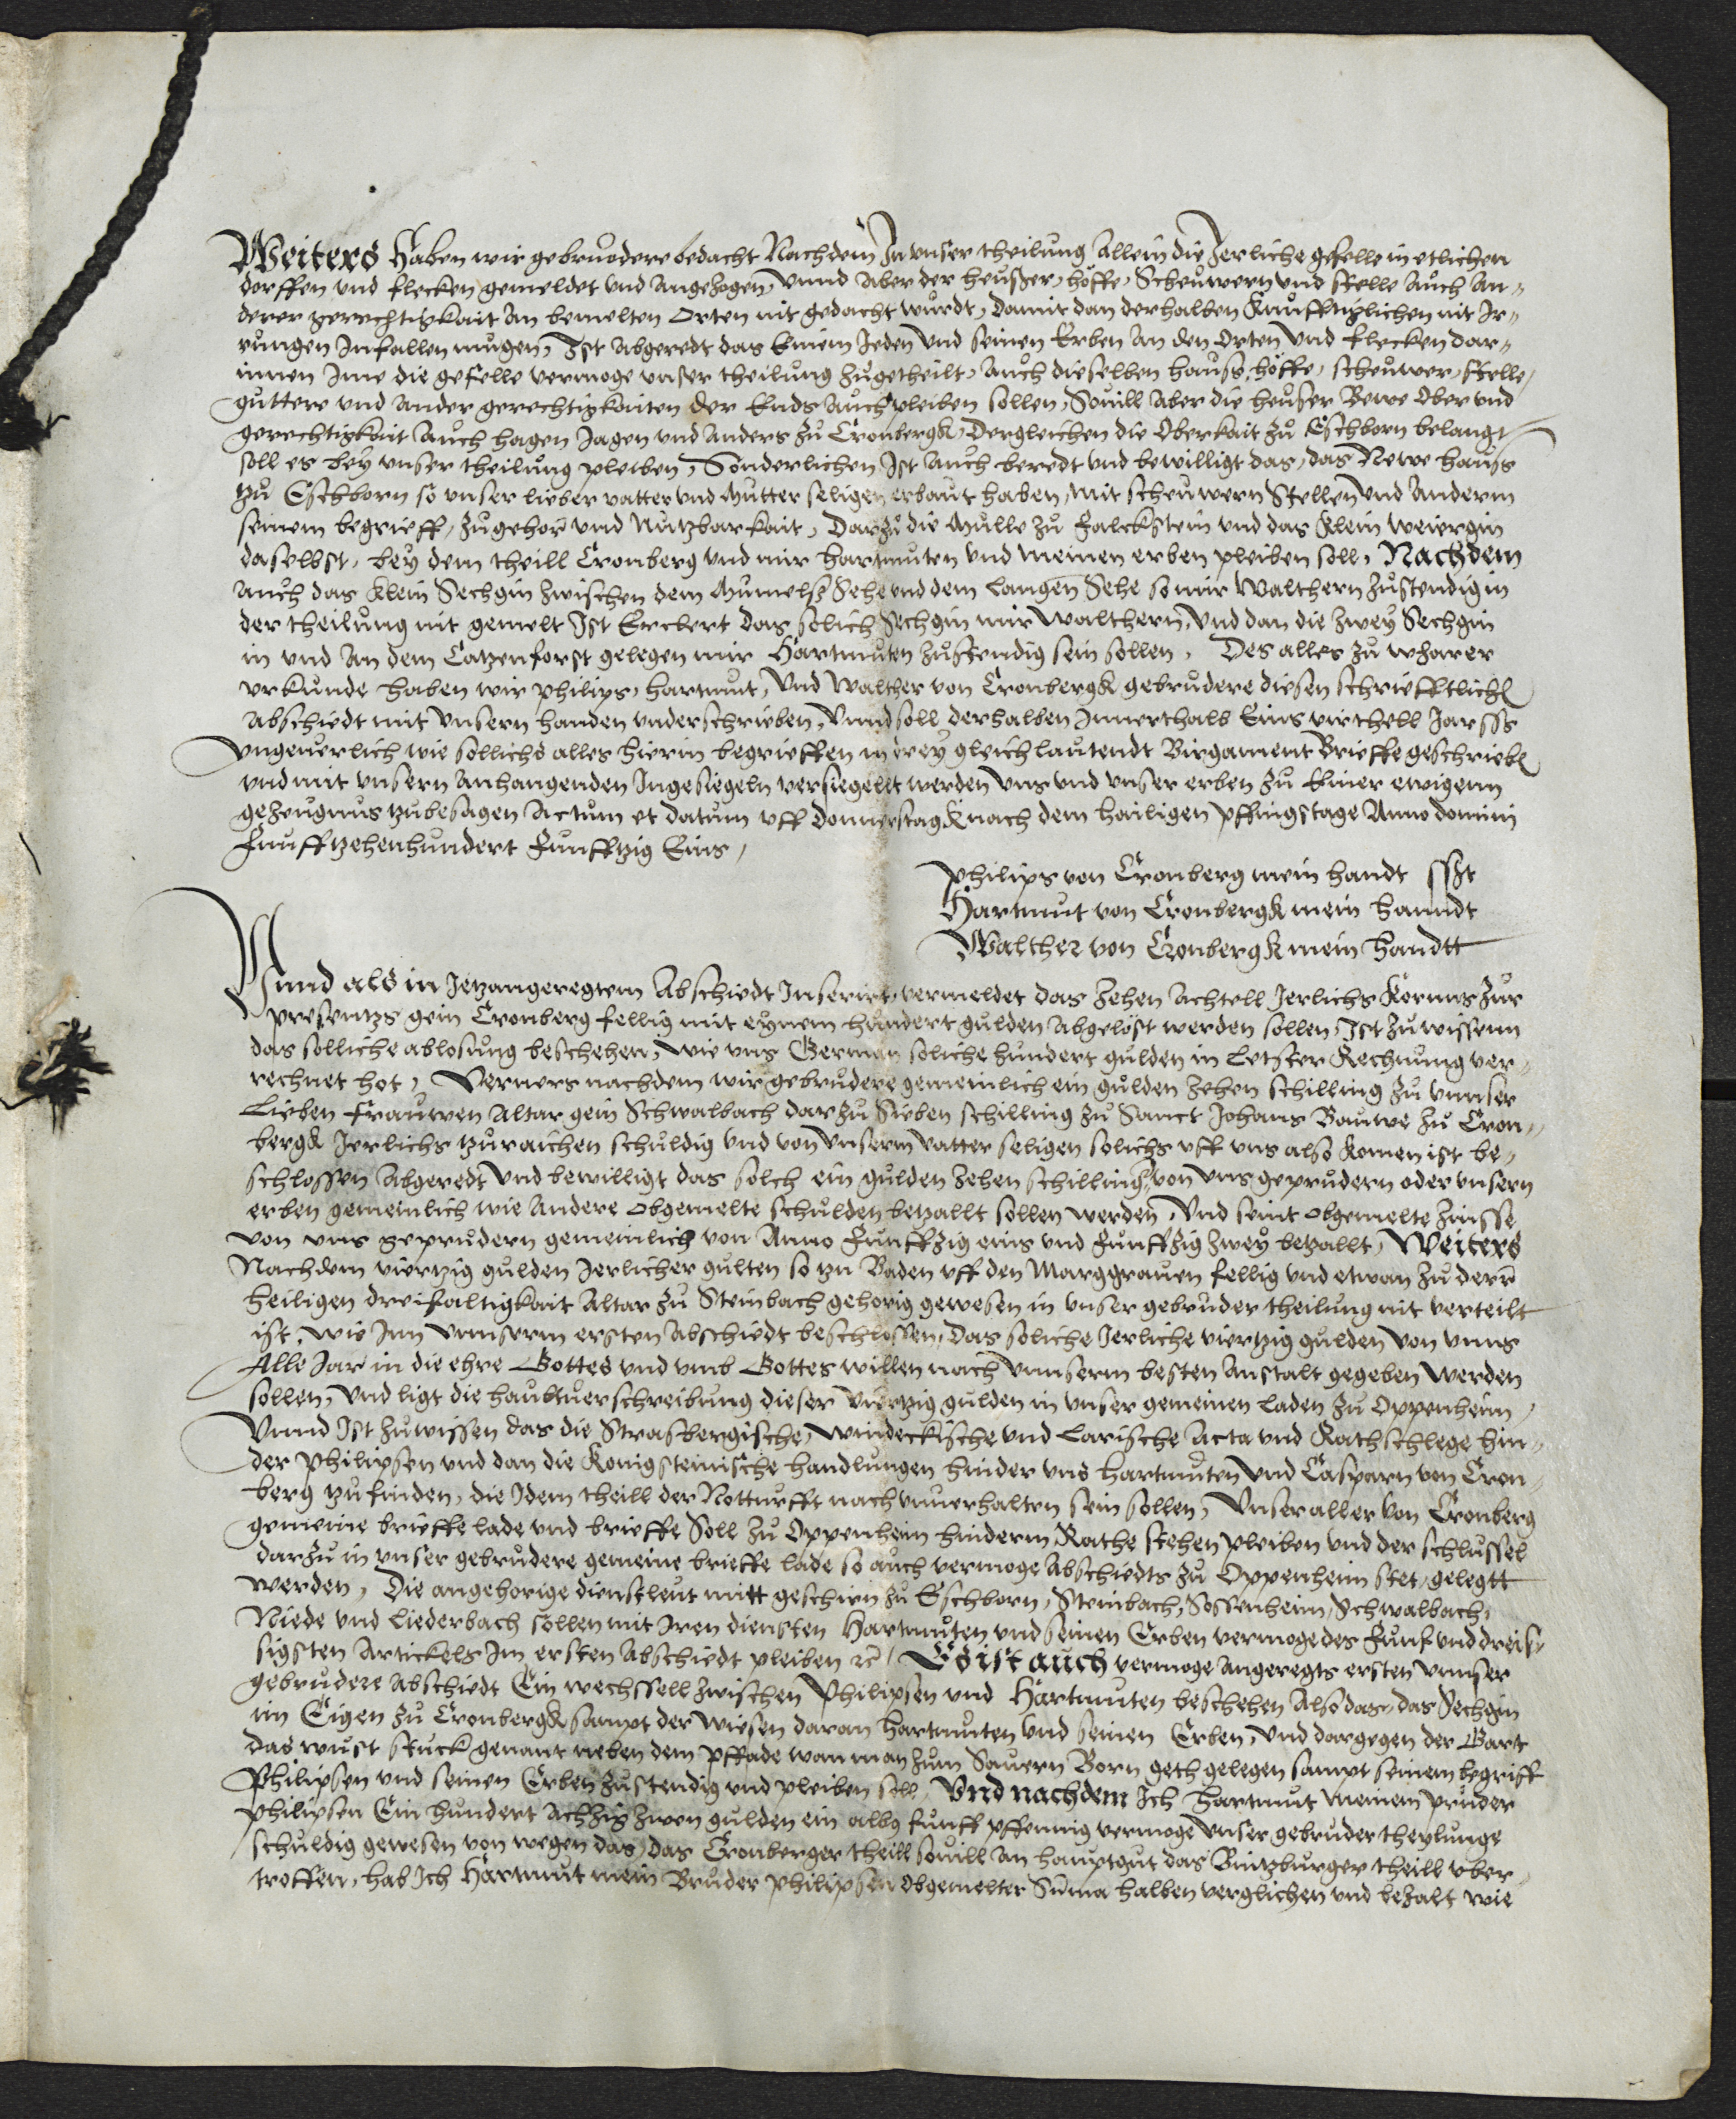 Weiters haben wir gebruodere bedacht Nachdem In unser theilung Allein die Jerliche gefelle in etlichen
dorffen und flecken gemeldet und Angezogen, Unnd Aber der heußer, höffe, Scheuwern und stelle Auch An-
derer gerechtigkait An bemelten Orten nit gedacht wurdt, Damit dan derhalben Kunfftiglichen nit Ir-
rungen Infallen mugen, Ist Abgeredt das Einem Jeden Und seinen Erben An den Orten Und flecken dar-
innen Ime die gefelle vermoge unser theilung zugetheilt, Auch dieselben hauß, höffe, scheuwer, stelle,
guttere und Ander gerechtigkaiten der Ends Auch pleiben sollen, Souill Aber die heuser Bewe Ober und
gerechtigkait Auch hagen Jagen und Anders zu Cronbergk, Dergleichen die Oberkait zu Eschborn belangt
soll es bey unser theilung pleiben, Sonderlichen Ist Auch beredt und bewilligt das, das Newe hauß
zu Eschborn so unser lieber vatter und Mutter seligen erbaut haben, mit scheuwern Stellen Und Anderm
seinem begrieff, zugehor und Nutzbarkait, Darzu die Mulle zu Falckstein und das Klein weiergin
daselbst, bey dem theill Cronberg und mir hartmuten und meinen erben pleiben soll, Nachdem
Auch das Klein Sechgin zwischen dem Mumelß Sehe und dem Langen Sehe so mir Walthern zustendig in
der theilung nit gemelt Ist Erclert das solich Sechgin mir Walthern, Und dan die zwey Sechgin
in und An dem Catzenforst gelegen mir Hartmuten zustendig sein sollen, Des alles zu wharer
urkunde haben wir philips, hartmut, Und Walther von Cronbergk gebrudere diesen schriefftlich
Abschiedt mit Unsern handen underschrieben, Unnd soll derhalben Innerthalb Eins virthell Jarss
Ungeuerlich wie sollichs alles hierin begrieffen in drey gleichlautendt Birgament Brieffe geschrieb
und mit unsern Anhangenden Ingesiegeln versiegellt werden Uns und unser erben zu Einer ewigenn
gezeugnus zubesagen Actum et datum uff Donnerstagk nach dem hailigen pffingstage Anno domini
Funfftzehenhundert Funfftzig Eins,
philips von Cronberg mein handt sst
Hartmut von Cronbergk mein hanndt
Walther von Cronbergk mein handtt
Unnd als in Jetzangeregtem Abschiedt Inserirt, vermeldet das zehen Achtell Jerlichs Kornns zur
presentzs gein Cronberg fellig mit eynem hundert gulden Abgelöst werden sollen, Ist zuwissenn
das solliche ablosung beschehen, wie uns German soliche hundert gulden in Letster Rechnung ver-
rechnet hot, Verners nachdem wir gebrudere gemeinlich ein gulden zehen schilling zu Unnser
Lieben Frauwen Altar gein Schwalbach darzu Sieben schilling zu Sanct Johans Bauwe zu Cron-
bergk Jerlichs zuraichen schuldig und von Unserm vatter seligen solichs uff uns also komen ist be-
schlossen Abgeredt Und bewilligt das solch ein gulden zehen schilling von uns geprudern oder unsern
erben gemeinlich wie Andere Obgemelte schulden betzallt sollen werden, Und seint obgemelte zinsse
von uns geprudern gemeinlich von Anno Funffzig eins und Funffzig zwey betzallt, Weiters
Nachdem viertzig gulden Jerlicher gulten so zu Baden uff den Marggrauen fellig und etwan zu derr
heiligen dreifaltigkait Altar zu Steinbach gehorig gewesen in unser gebruder theilung nit verteilt
ist, wie Inn Unnserm ersten Abschiedt beschlossen, Das soliche Jerliche viertzig gulden von Unns
Alle Jar in die ehre Gottes und umb Gottes willen nach Unnserm besten Anstalt gegeben werden
sollen, Und ligt die haubtuerschreibung dieser viertzig gulden in unser gemeinen laden zu Oppenheim,
Unnd Ist zuwissen das die Strasbergische, windeckische und Larische Acta und Rathschlege hin-
der philipsen und dan die Konigsteinische handlungen hinder uns hartmuten Und Casparn von Cron-
berg zufinden, die Idem theill der Notturfft nach unuerhalten sein sollen, Unser aller von Cronberg
gemeine brieffe lade und brieffe Soll zu Oppenheim hinderm Rathe stehen pleiben und der schlussel
darzu in unser gebrudere gemeine brieffe lade so auch vermoge Abschiedts zu Oppenheim stet, gelegtt
werden, Die angehorige dienstleut mitt geschirr zu Eschborn, Steinbach, Sossenheim, Schwalbach,
Niede und Liederbach sollen mit Iren diensten Hartmuten und seinen Erben vermoge des Funf und dreis-
sigsten Artickels Im ersten Abschiedt pleiben ꝛc, Es ist auch vermoge Angeregts ersten Unnser
gebrudere Abschiedt Ein wechssell zwischen Philipsen und Hartmuten beschehen Also das, das Sechgin
im Eigen zu Cronbergk sampt der Wiesen daran hartmuten und seinen Erben, Und dargegen der Gart
das wust stuck genant neben dem pffade wan man zum Sauern Born geth gelegen sampt seinem begriff
Philipsen und seinen Erben zustendig und pleiben soll, Und nachdem Ich Hartmut meinem pruder
philipsen Ein hundert Achzig zwen gulden ein albus funff pffennig vermoge Unser gebruder theylunge
schuldig gewesen von wegen das, das Cronberger theill souill An hauptgut das Bintzburger theill uber-
troffen, hab Ich Hartmut mein Bruder philipsen Obgemelter Suma halben verglichen und bezalt, wie